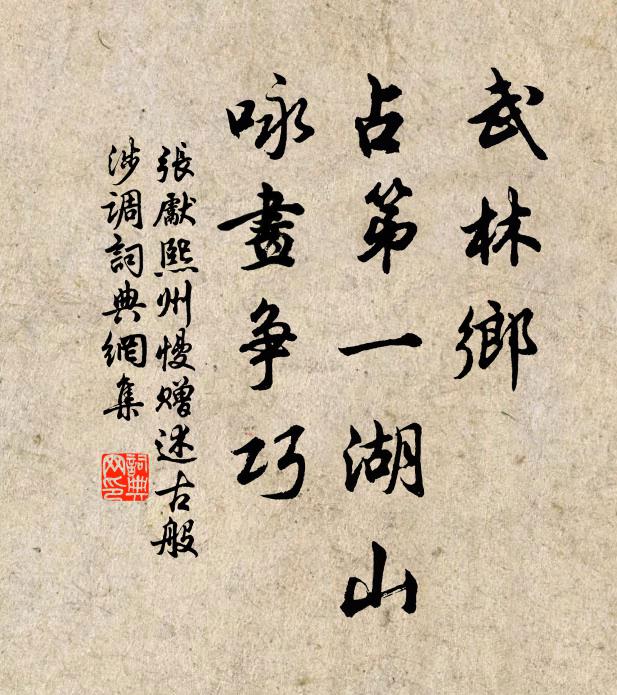 武林鄉
占第一湖山
咏畫争巧
張獻熙州慢贈述古般
涉调詞典網集
詞典網印